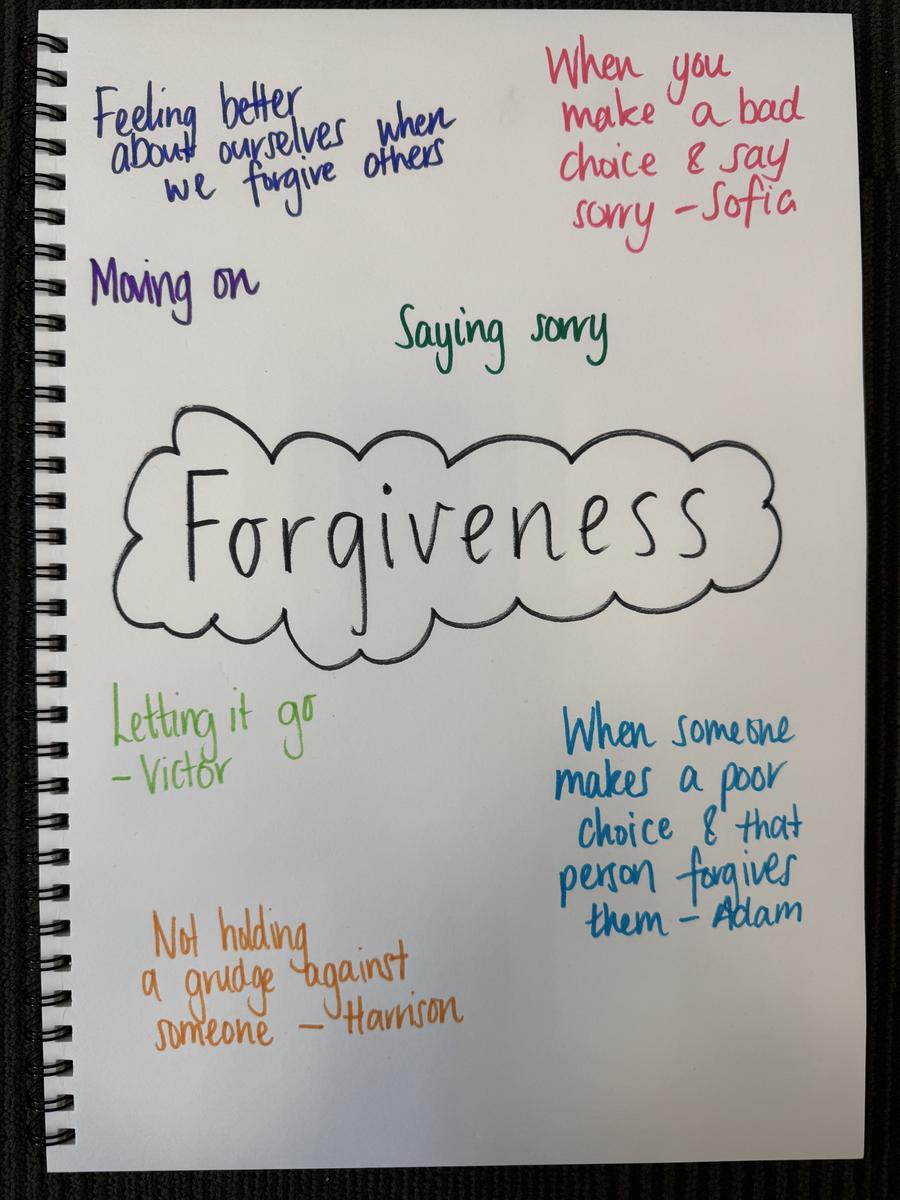 Feeling better
about ourselves when
we forgive others
When you
make a bad
choice & say
sorry - Sofia
Moving on
Saying sorry
Forgiveness
Letting it go
- Victor
When someone
makes a poor
choice & that
person forgives
them - Adam
Not holding
a grudge against
someone - Harrison